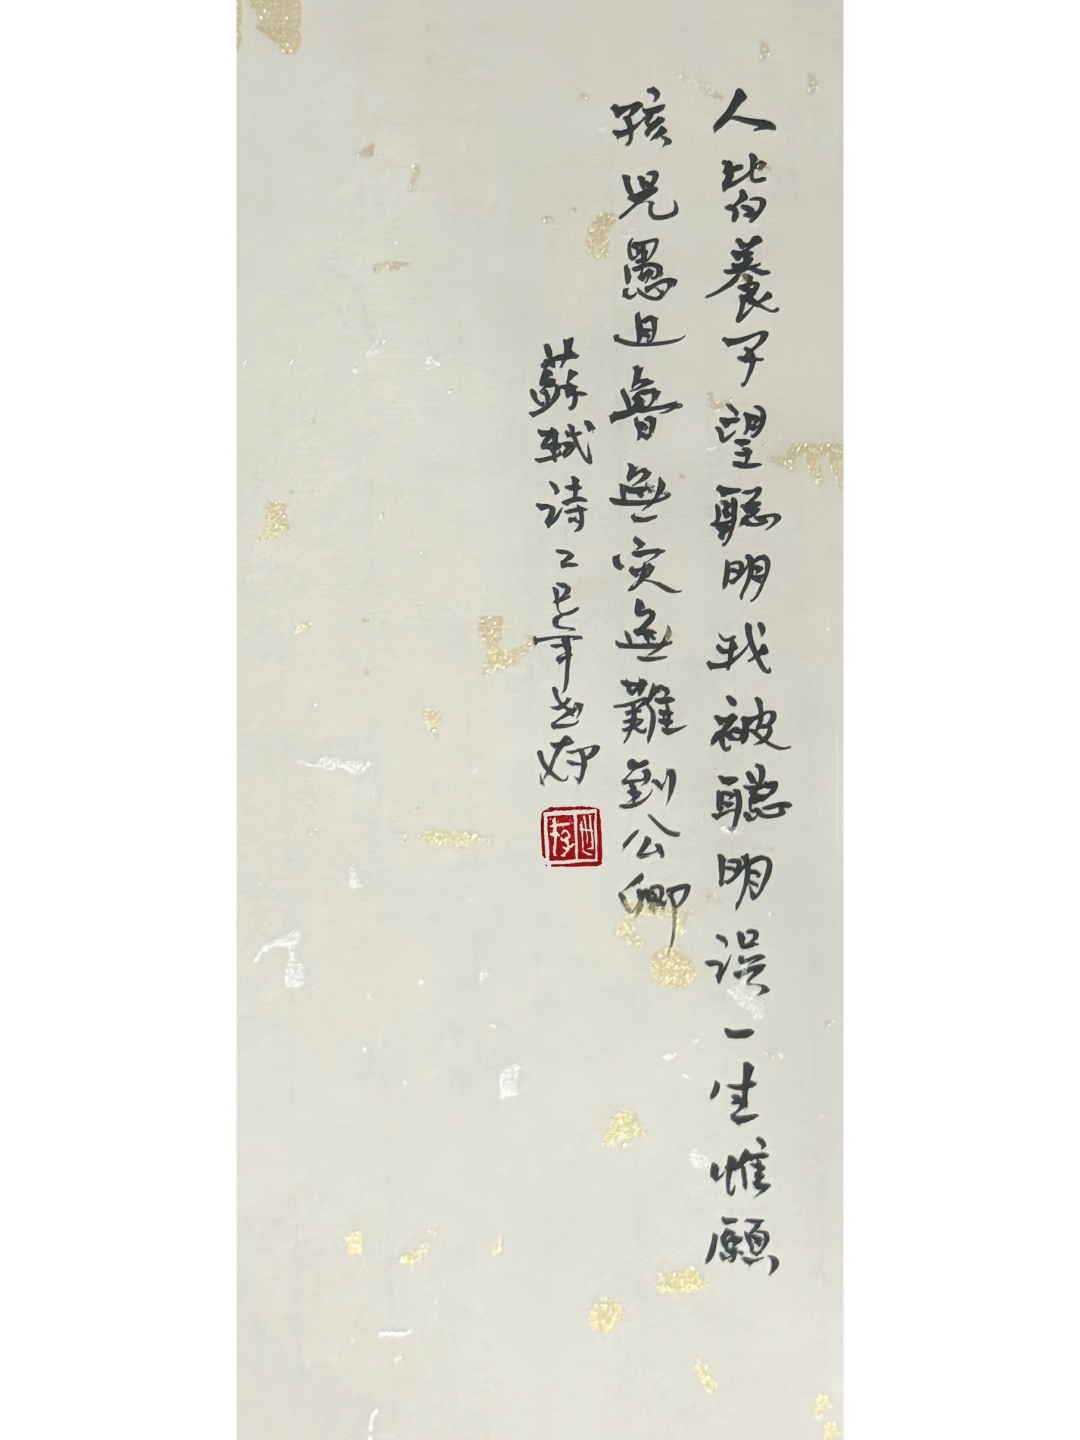 人皆養子望聰明我被聰明误一生惟願
孩兒愚且魯無灾無難到公卿
蘇軾诗乙巳年世